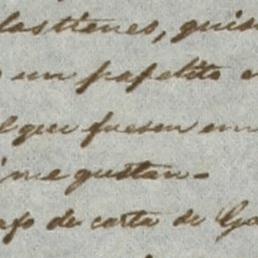 las tienes, quis
un papelito e
que fuesen en
me gustan.
de carta de Go